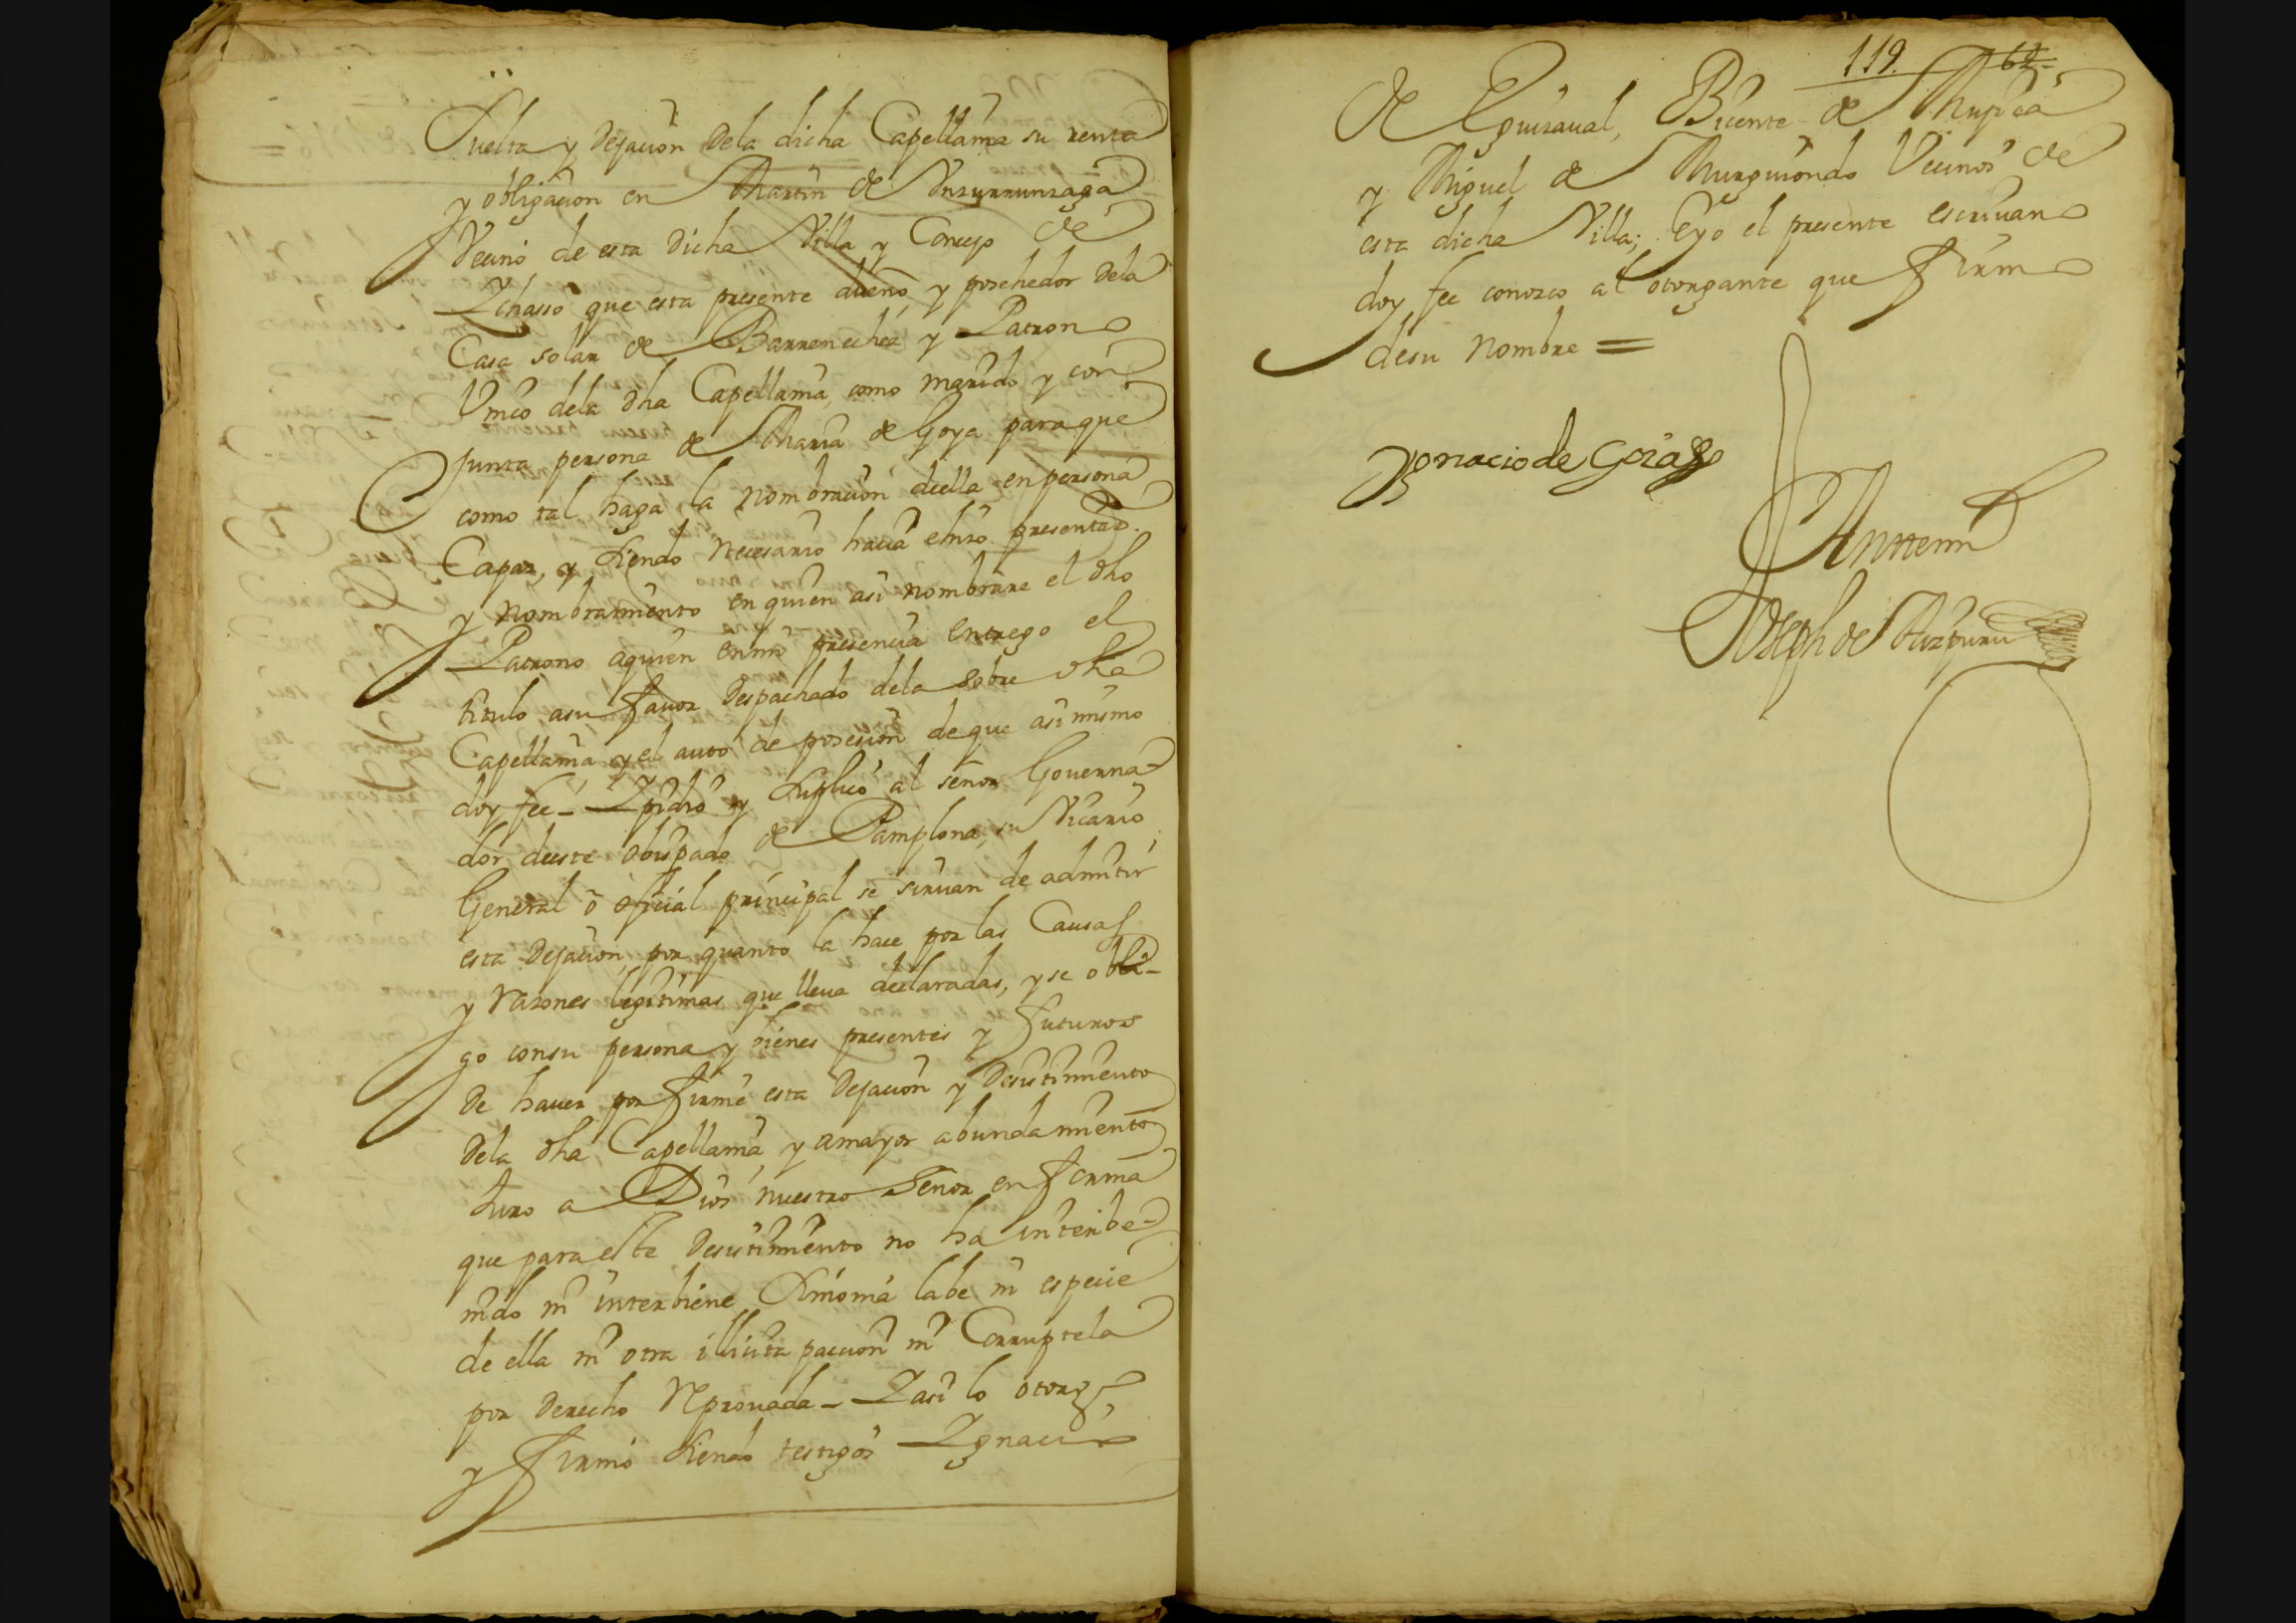 Suelta y Dejacion Dela dicha Capellania su renta
y obligacion en Martin de Unzurrunzaga
Vecino de esta Dicha Villa y Concejo de
que esta presente dueño y posehedor Dela
Casa solar de Barrenechea y Patrono
Unico dela dha Capellania, como marido y con
Junta persona de Maria de Goya paraque
como tal haga la nombracion deella en persona
Capaz, y siendo necesario hacia presentaon.
y nombramiento en quien asi nombrare el dho
Patrono aquien enmi presencia entrego el
titulo asu favor Despachado dela sobre dha
Capellania y el auto de posesion deque asimismo
doy fee - Ypidio y Suplico al señor Governa-
dor deeste obispado de Pamplona, su Vicario
General o oficial principal se sirvan de admitir
esta Dejacion, por quanto la hace por las Causas
y razones legitimas que lleva declaradas, y se obli-
go consu persona y bienes presentes y futuros
De haver por firme esta Dejacion y Desistimiento
Dela dha Capellania y amayor abundamiento
Juro a Dios nuestro Señor en forma
que para este Desistimiento no ha interbe-
nido ni interbiene Simonia labe ni especie
de ella ni otra illicita paccion ni Corruptela
por Derecho Reprouada - Yasi lo otorgo,
y firmo Siendo testigos Ygnacio
119. 62
de Eguizaual, Bicente de Mugica
y Miguel de Murguiondo Vecinos de
esta dicha Villa; Eyo el presente escrivano
doy fee conozco al otorgante que firmo
desu nombre =
Ygnacio de
Antemi
Joseph de Aizpuru